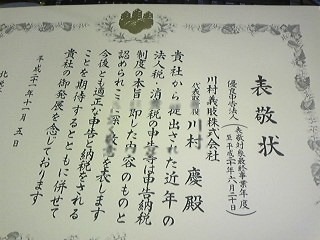 表敬状
優良申告法人
(表敬対象最終事業年度
至平成二十年六月二十日)
川村義肢株式会社
代表取締役
川村 慶殿
貴社から提出された近年の
法人税・消費税の申告等は申告納税
制度の本旨に即した内容のものと
認められここに深く敬意を表します
今後とも適正な申告と納税をされる
ことを期待するとともに併せて
貴社の御発展を念じております
平成二十一年十一月五日